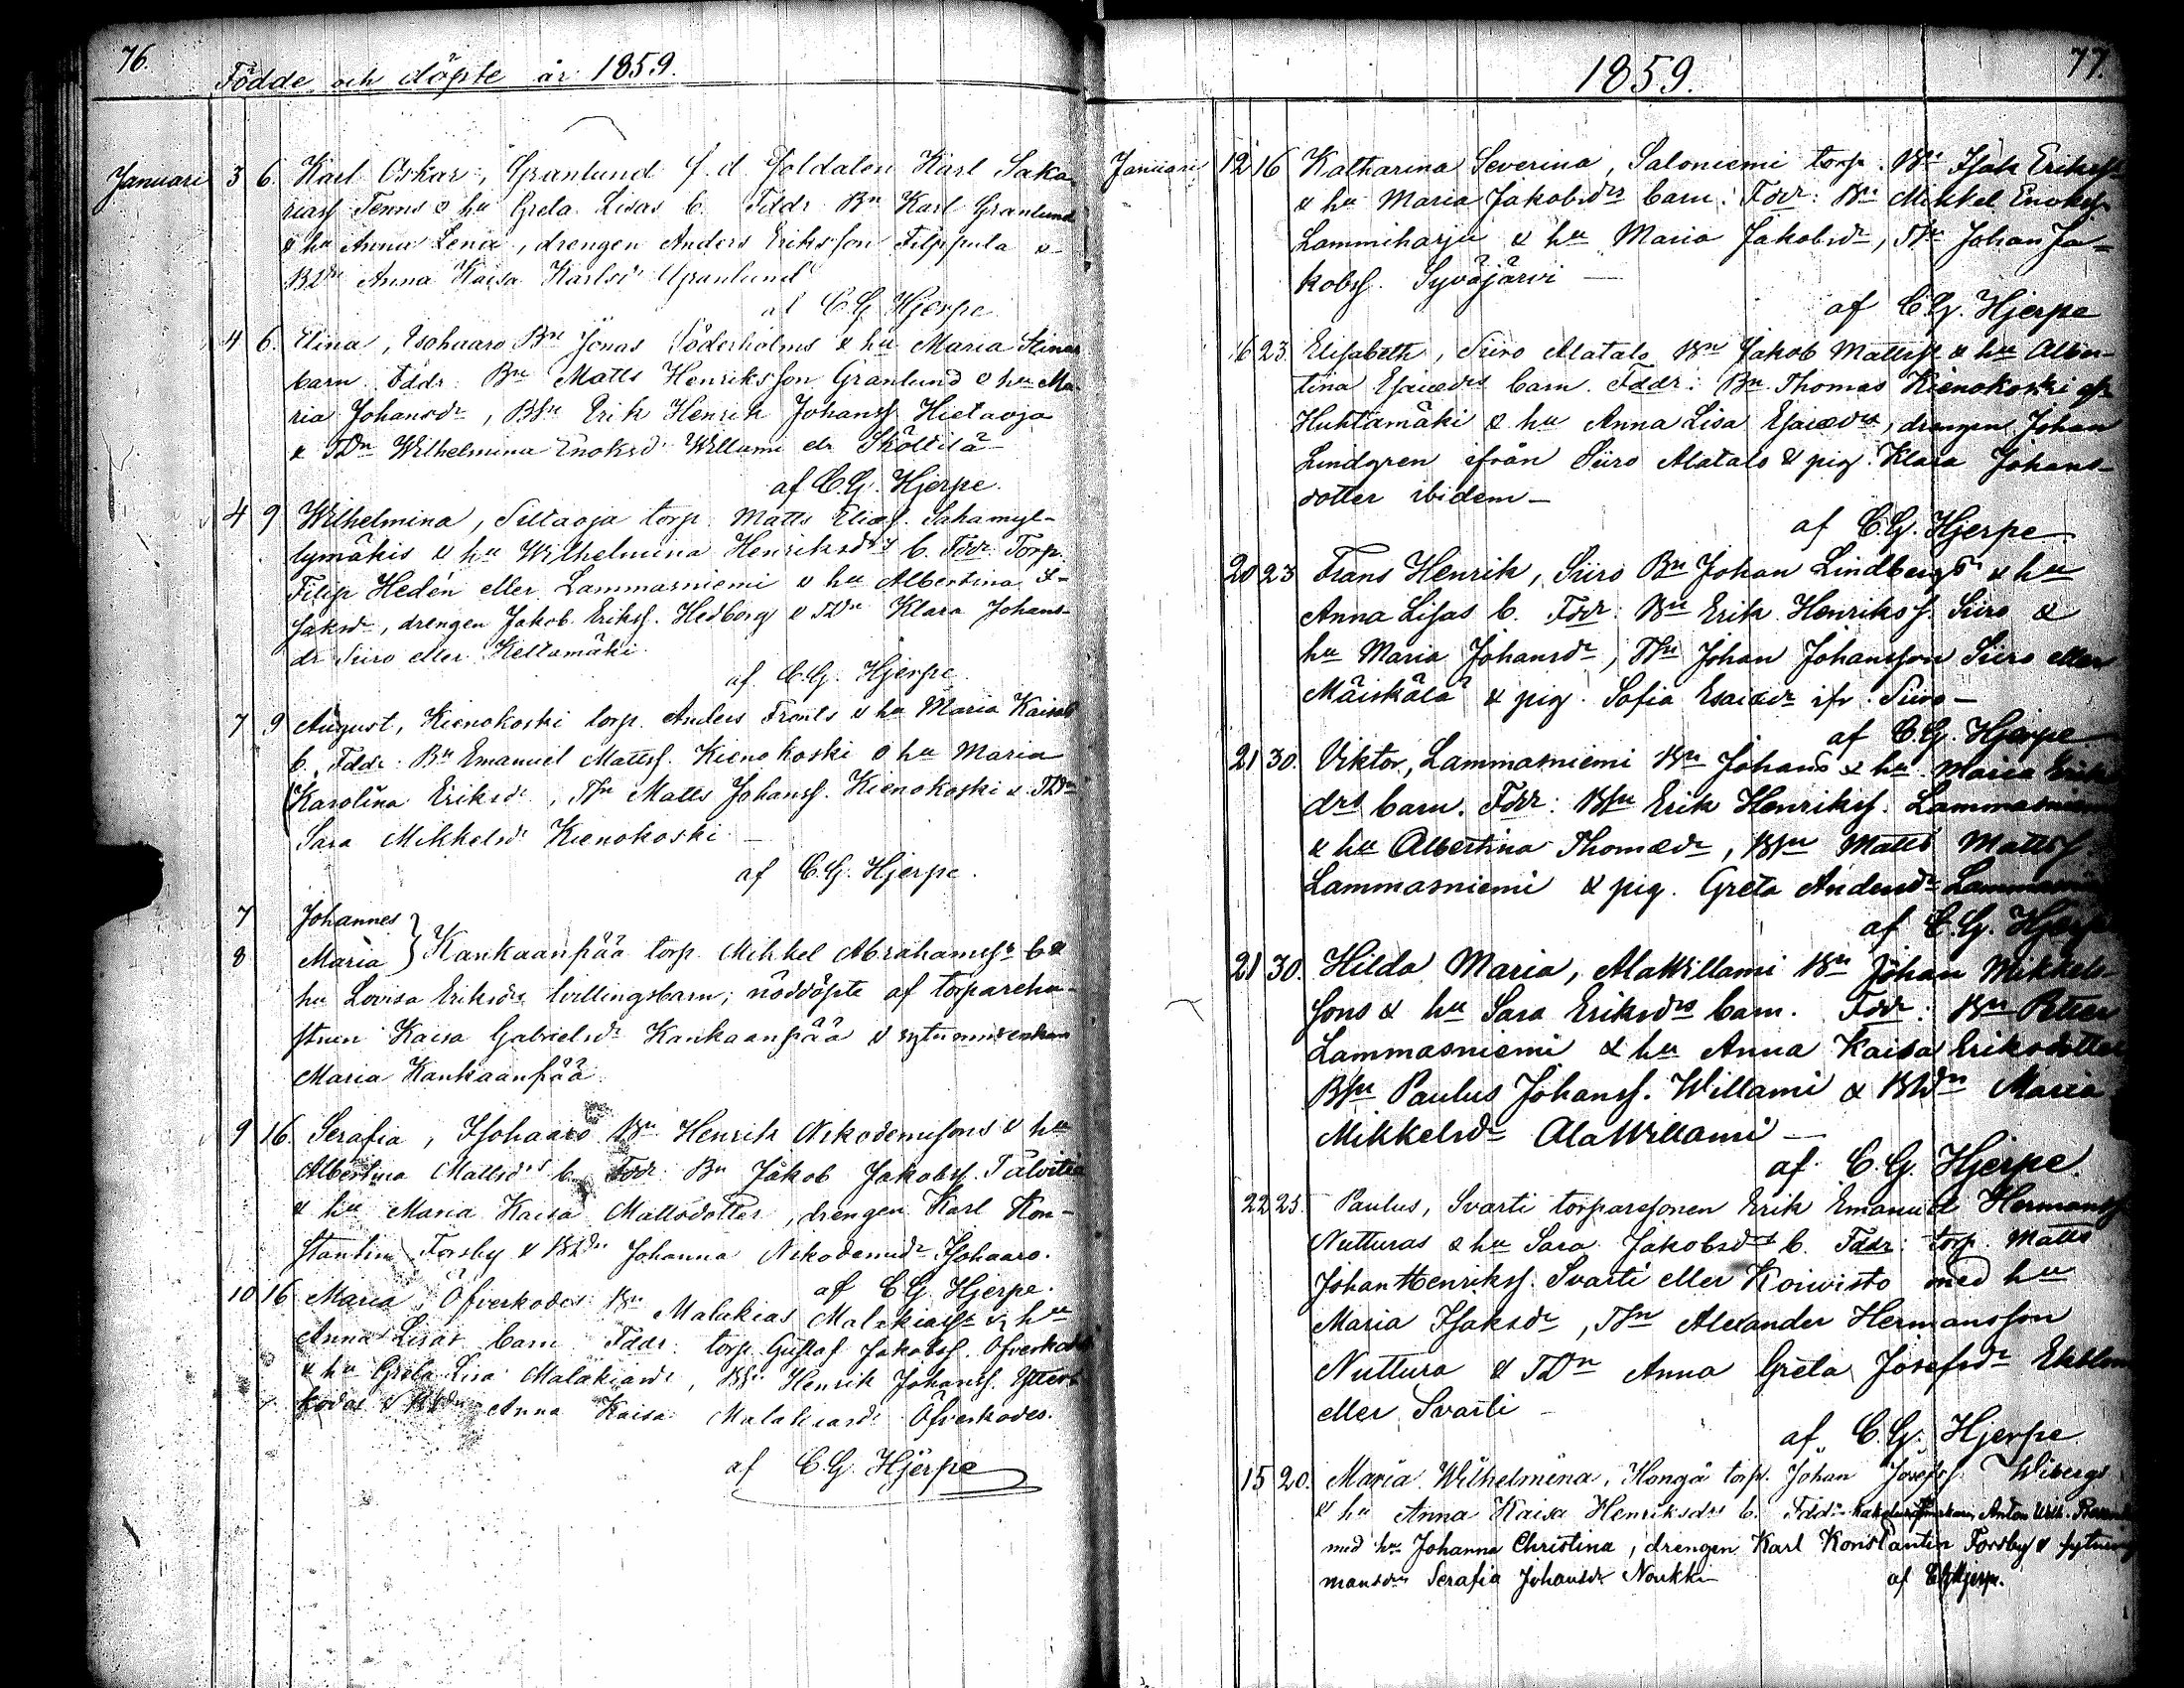 76.
Födde och döpte år 1859.
Januari 3 6. Karl Oskar, Granlund f. d. Soldaten Karl Saka-
riass Tenns & hu Greta Lisas b. Fddr Bn Karl Granlund
& hu Anna Lena, drengen Anders Eriksson Filppula &
BDn Anna Kaisa Karlsdr Granlund
af C.G. Hjerpe
4 6. Elina, Isohaaro Bn Jonas Söderholms & hu Maria Stinas
barn Fddr: Bn Matts Henriksson Granlund & hu Ma-
ria Johansdr, BSn Erik Henrik Johanss. Hietaoja
& TDn Wilhelmina Enoksdr Willami elr
af C.G. Hjerpe.
4 9 Wilhelmina, Siltaoja torp. Matts Eliæs. Sahamyl-
lymäkis & hu Wilhelmina Henriksdrs b. Fddr. Torp.
Filip Hedén eller Lammasniemi & hu Albertina I-
saksdr, drengen Jakob Erikss. Hedborg & TDn Klara Johans-
dr Siiro eller Keltamäki
af C.G. Hjerpe
7 9 August, Kienokoski torp. Anders Frants & hu Maria Kaisas
b. Fddr: Bn Emanuel Mattss. Kienokoski & hu Maria
Karolina Eriksdr, TSn Matts Johanss. Kienokoski & TDn
Sara Mikkelsdr Kienokoski —
af C.G. Hjerpe.
7 Johannes
8 Maria } Kankaanpää torp. Mikkel Abrahamss: &
hu Lovisa Eriksdrs tvillingsbarn; nöddöpte af torparehu-
strun Kaisa Gabrielsdr Kankaanpää &
Maria Kankaanpää
9 16 Serafia, Isohaaro Bn Henrik Nikodemisons & hu
Albertina Mattsdrs b. Fddr: Bn Jakob Jakobss. Talvitie
& hu Maria Kaisa Mattsdotter, drengen Karl Kon-
stantin Forsby & BDn Johanna Nikodemidr Isohaaro.
af C.G. Hjerpe.
10 16 Maria, Öfverkodes Bn Malakias Malakiæss & hu
Anna Lisas barn Fddr: torp. Gustaf Jakobss. Öfverkodes
& hu Greta Lisa Malakiædr, BSn Henrik Johanss. Ytter-
kodes & BDn Anna Kaisa Malakiædr Öfverkodes.
af C.G. Hjerpe
1859.
77.
Januari 12 16 Katharina Severina, Saloniemi torp. Bn Isak Erikss
& hu Maria Jakobsdrs barn: Fddr: Bn Mikkel Enokss
Lammiharju & hu Maria Jakobsdr, TSn Johan Ja-
kobss. Syväjärvi —
af C.G. Hjerpe
16 23. Elisabeth, Siiro Alatalo Bn Jakob Mattss & hu Alber-
tina Esaiædrs barn. Fddr: Bn Thomas Kienokoski
Huhtamäki & hu Anna Lisa Esaiædr, drengen Johan
Lindgren ifrån Siiro Alatalo & pig. Klara Johans-
dotter ibidem —
af C.G. Hjerpe
20 23 Frans Henrik, Siiro Bn Johan Lindbergs & hu
Anna Lisas b. Fddr: Bn Erik Henrikss. Siiro &
hu Maria Johansdr, TSn Johan Johansson Siiro eller
Mäiskälä & pig. Sofia Esaiædr ifr. Siiro —
af C.G. Hjerpe
21 30. Viktor, Lammasniemi Bn Johans & hu Maria Eriks
drs barn. Fddr: BSn Erik Henrikss. Lammasniemi
& hu Albertina Thomædr, BSn Matts Mattss
Lammasniemi & pig. Greta Andersdr
af C.G. Hjerpe
21 30. Hilda Maria, Ala Willami Bn Johan Mikkels-
sons & hu Sara Eriksdrs barn. Fddr: Bn Petter
Lammasniemi & hu Anna Kaisa Eriksdotter
BSn Paulus Johanss. Willami & BDn Maria
Mikkelsdr Ala Willami —
af C.G. Hjerpe.
22 25. Paulus, Svarti torparesonen Erik Emanuel Hermanss
Nutturas & hu Sara Jakobsdrs b. Fddr: torp. Matts
Johan Henrikss. Svarti eller Koivisto med hu
Maria Isaksdr, TSn Alexander Hermansson
Nuttura & TDn Anna Greta Josefsdr Ekblom
eller Svarti —
af C.G. Hjerpe
15 20. Maria Wilhelmina, Honga torp. Johan Josefss Wibergs
& hu Anna Kaisa Henriksdrs b. Fddr: Anton Wilh.
med hu Johanna Christina, drengen Karl Konstantin Forsby & sytnings
mansdn Serafia Johansdr Noukki
af C.G. Hjerpe.